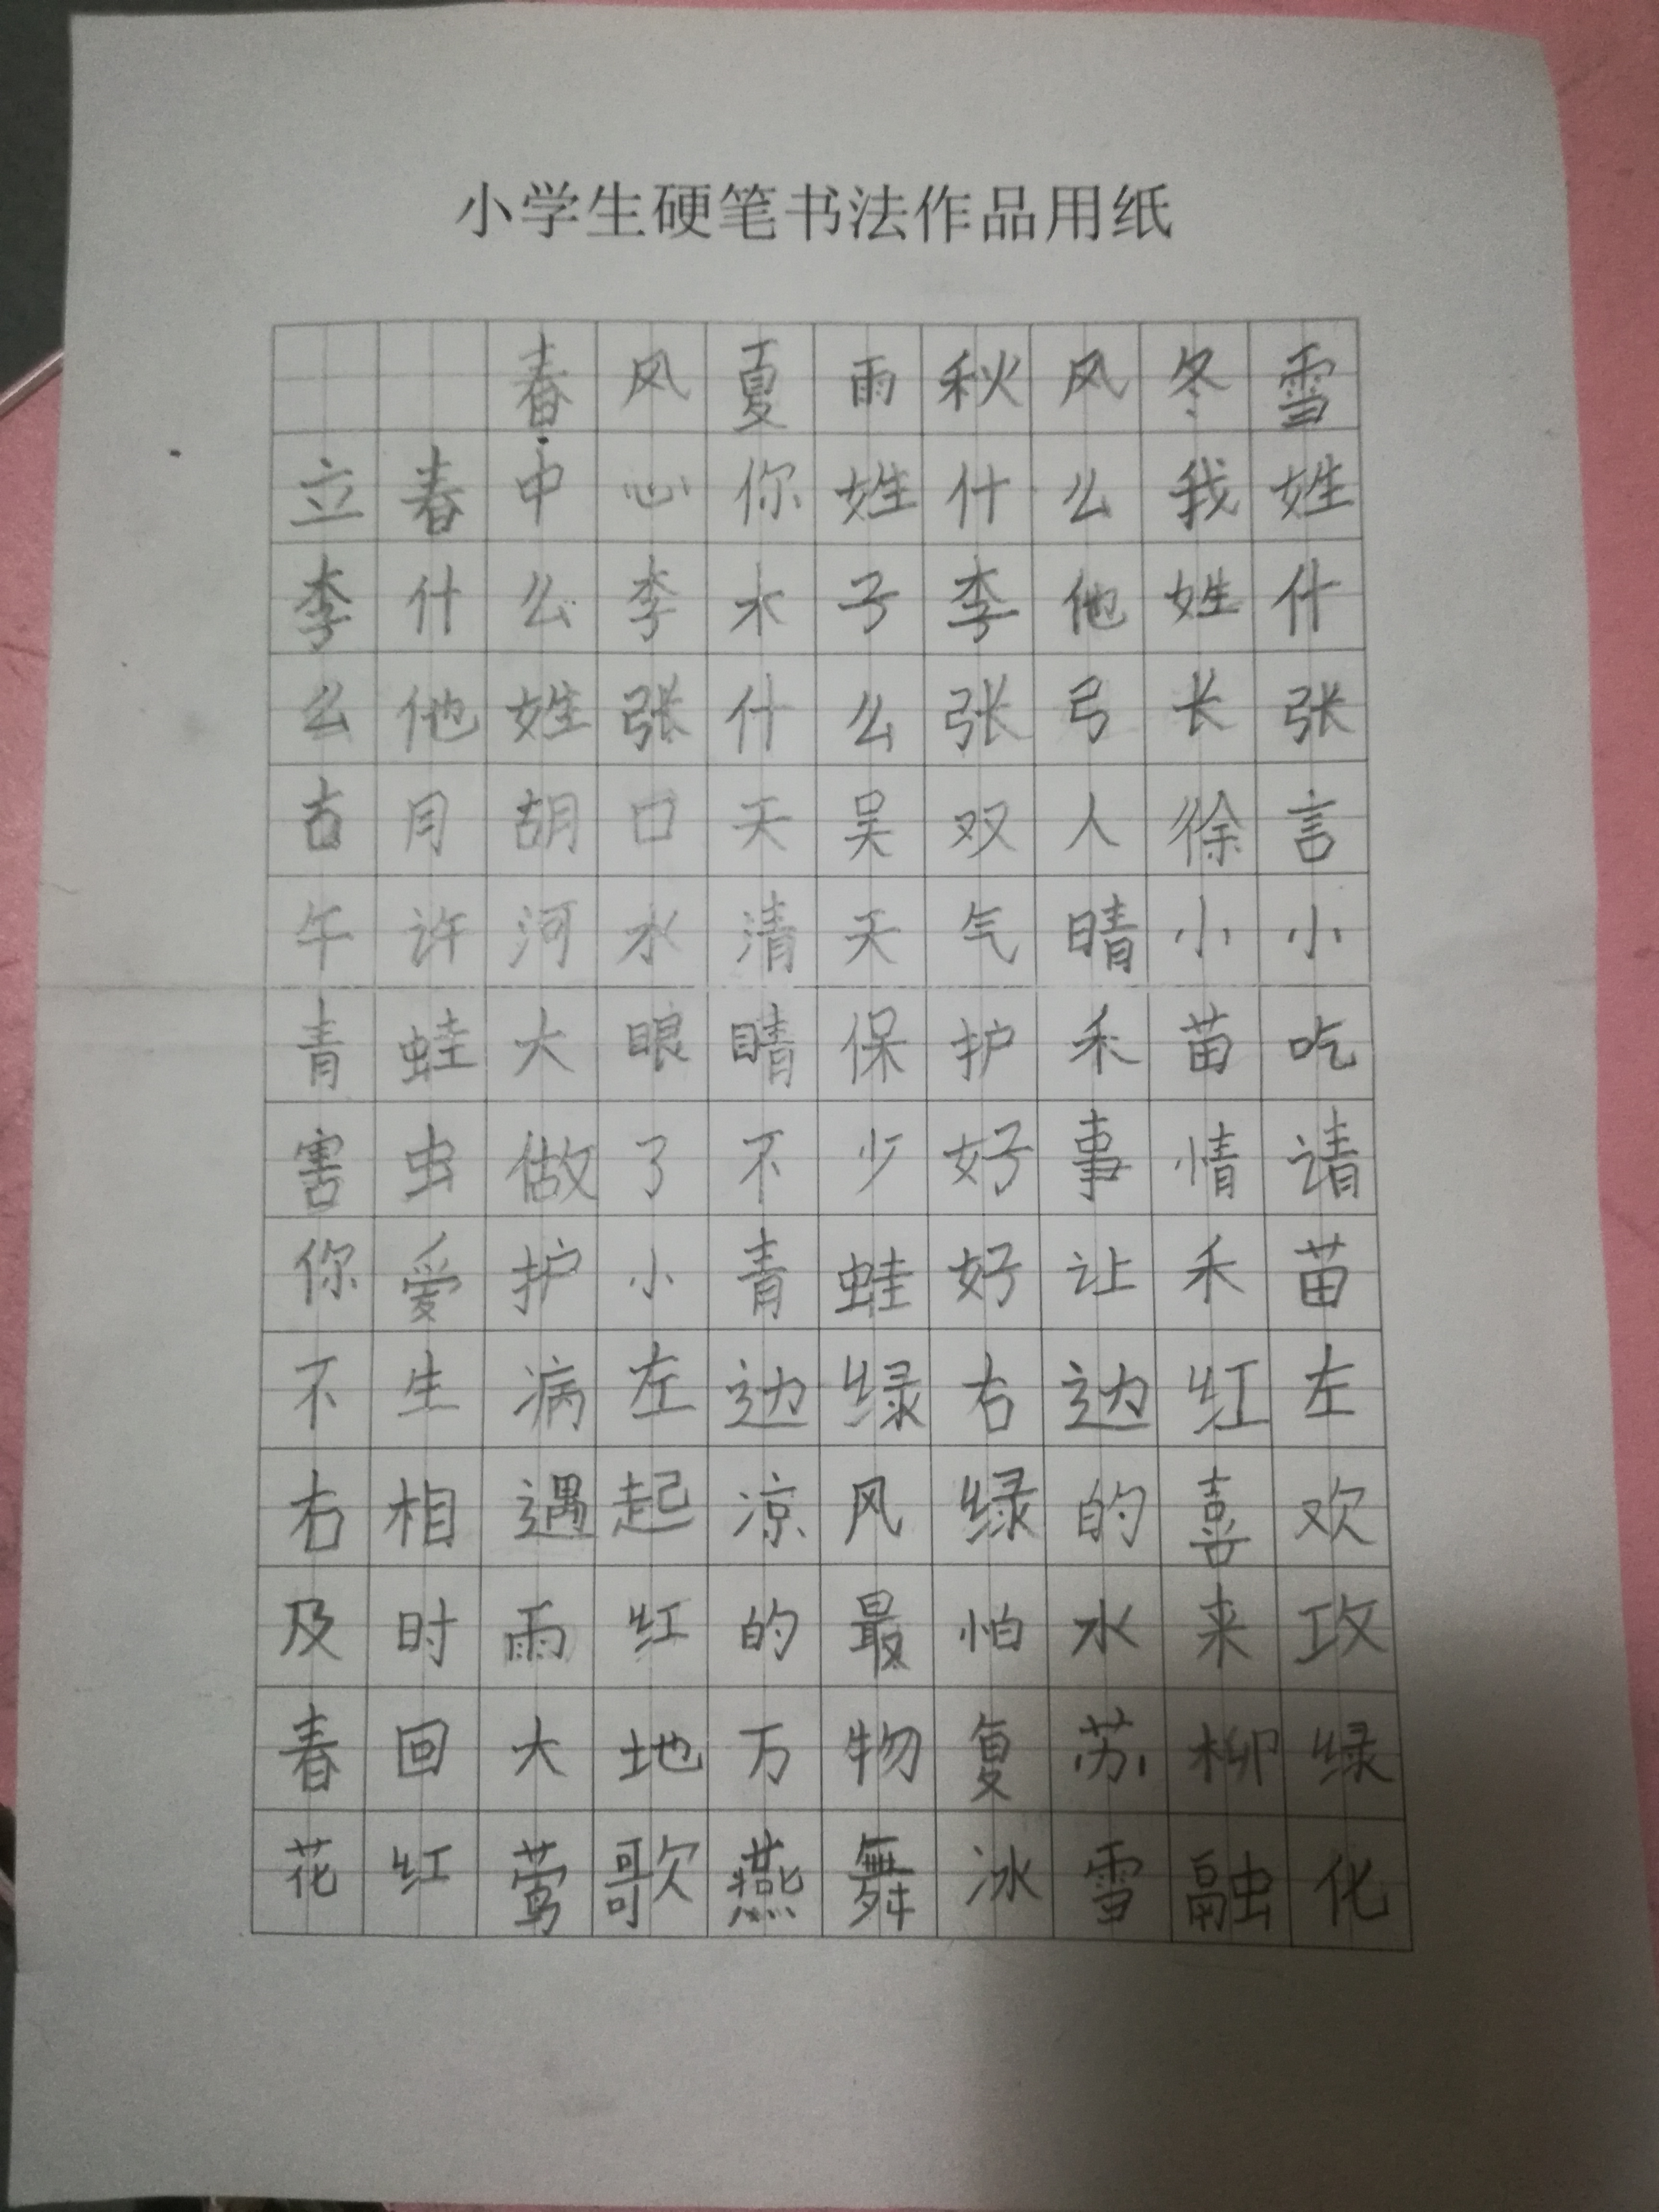 小学生硬笔书法作品用纸
春风夏雨秋风冬雪
立春中心你姓什么我姓
李什么李木子李他姓什
么他姓张什么张弓长张
古月胡口天吴双人徐言
午许河水清天气晴小小
青蛙大眼睛保护禾苗吃
害虫做了不少好事情请
你爱护小青蛙好让禾苗
不生病左边绿右边红左
右相遇起凉风绿的喜欢
及时雨红的最怕水来攻
春回大地万物复苏柳绿
花红莺歌燕舞冰雪融化